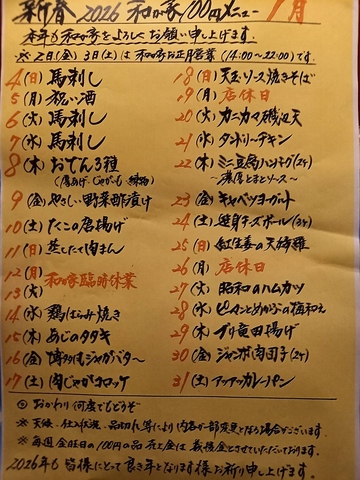 新春 2026 和が家 100円メニュー 1月
本年も和が家をよろしくお願い申し上げます。
※ 2日(金) 3日(土)は 和が家お正月営業 (14:00〜22:00)です。
4(日) 馬刺し
5(月) 祝い酒
6(火) 馬刺し
7(水) 馬刺し
8(木) おでん3種
(厚あげ・じゃがいも・練物)
9(金) やさしい野菜酢漬け
10(土) たこの唐揚げ
11(日) 蒸したて肉まん
12(月) 和が家臨時休業
13(火)
14(水) 鶏はらみ焼き
15(木) あじのタタキ
16(金) 博多明太じゃがバター
17(土) 肉じゃがコロッケ
18(日) 天玉ソース焼きそば
19(月) 店休日
20(火) カニカマ磯辺天
21(水) タンドリーチキン
22(木) ミニ豆腐ハンバーグ(2ケ)
〜濃厚とまとソース〜
23(金) キャベツヨーグルト
24(土) 変身チーズボール(3ケ)
25(日) 紅生姜の天婦羅
26(月) 店休日
27(火) 昭和のハムカツ
28(水) ピーマンとめかぶの梅和え
29(木) ブリ竜田揚げ
30(金) ジャンボ肉団子(2ケ)
31(土) アツアツカレーパン
◎ おかわり何度でもどうぞ
※ 天候・仕入状況、品切れ等により内容が一部変更となる場合がございます。
※ 毎週金曜日の100円の品 売上金は 義援金とさせていただいております。
2026年も 皆様にとって良き年となります様お祈り申し上げます。